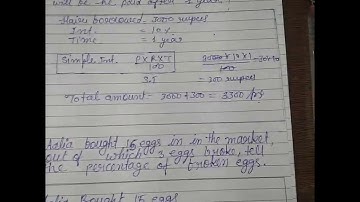 will be the paid after 1 year?
Hairu borrowed - 3000 rupees
Int. = 10 %
Time = 1 year
Simple Int. P X R X T
100
3000 X 10 X 1
100
S.I = 300 rupees
Total amount - 3000 + 300 = 3300
Aalia bought 15 eggs in in the market,
out of which 3 eggs broke, tell
the percentage of broken eggs.
Aalia Bought 15 eggs